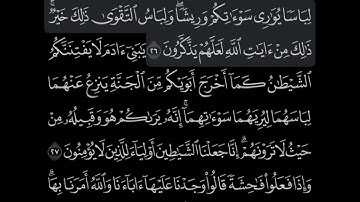 لِبَاسًا يُوَٰرِى سَوْءَٰتِكُمْ وَرِيشًا ۖ وَلِبَاسُ ٱلتَّقْوَىٰ ذَٰلِكَ خَيْرٌ ۚ
ذَٰلِكَ مِنْ ءَايَٰتِ ٱللَّهِ لَعَلَّهُمْ يَذَّكَّرُونَ ٢٦ يَٰبَنِىٓ ءَادَمَ لَا يَفْتِنَنَّكُمُ
ٱلشَّيْطَٰنُ كَمَآ أَخْرَجَ أَبَوَيْكُم مِّنَ ٱلْجَنَّةِ يَنزِعُ عَنْهُمَا
لِبَاسَهُمَا لِيُرِيَهُمَا سَوْءَٰتِهِمَآ ۗ إِنَّهُۥ يَرَىٰكُمْ هُوَ وَقَبِيلُهُۥ مِنْ
حَيْثُ لَا تَرَوْنَهُمْ ۗ إِنَّا جَعَلْنَا ٱلشَّيَٰطِينَ أَوْلِيَآءَ لِلَّذِينَ لَا يُؤْمِنُونَ ٢٧
وَإِذَا فَعَلُوا۟ فَٰحِشَةً قَالُوا۟ وَجَدْنَا عَلَيْهَآ ءَابَآءَنَا وَٱللَّهُ أَمَرَنَا بِهَا ۗ